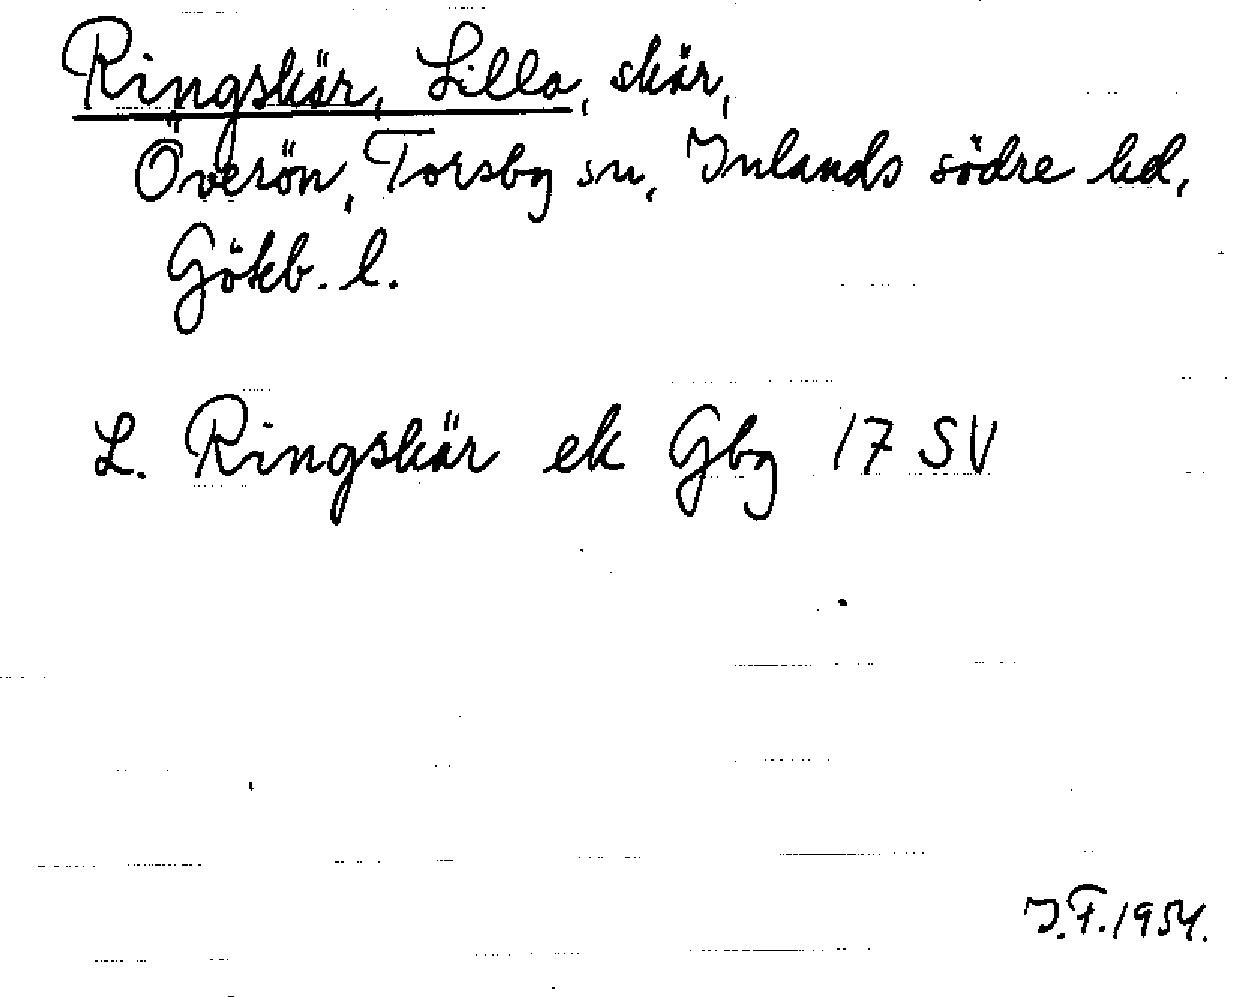 Ringskär, Lilla, skär,
Överön, Torsby sn, Inlands södre hd,
Götkb. l.
L. Ringskär ek Gbg 17 SV
J.F. 1954.